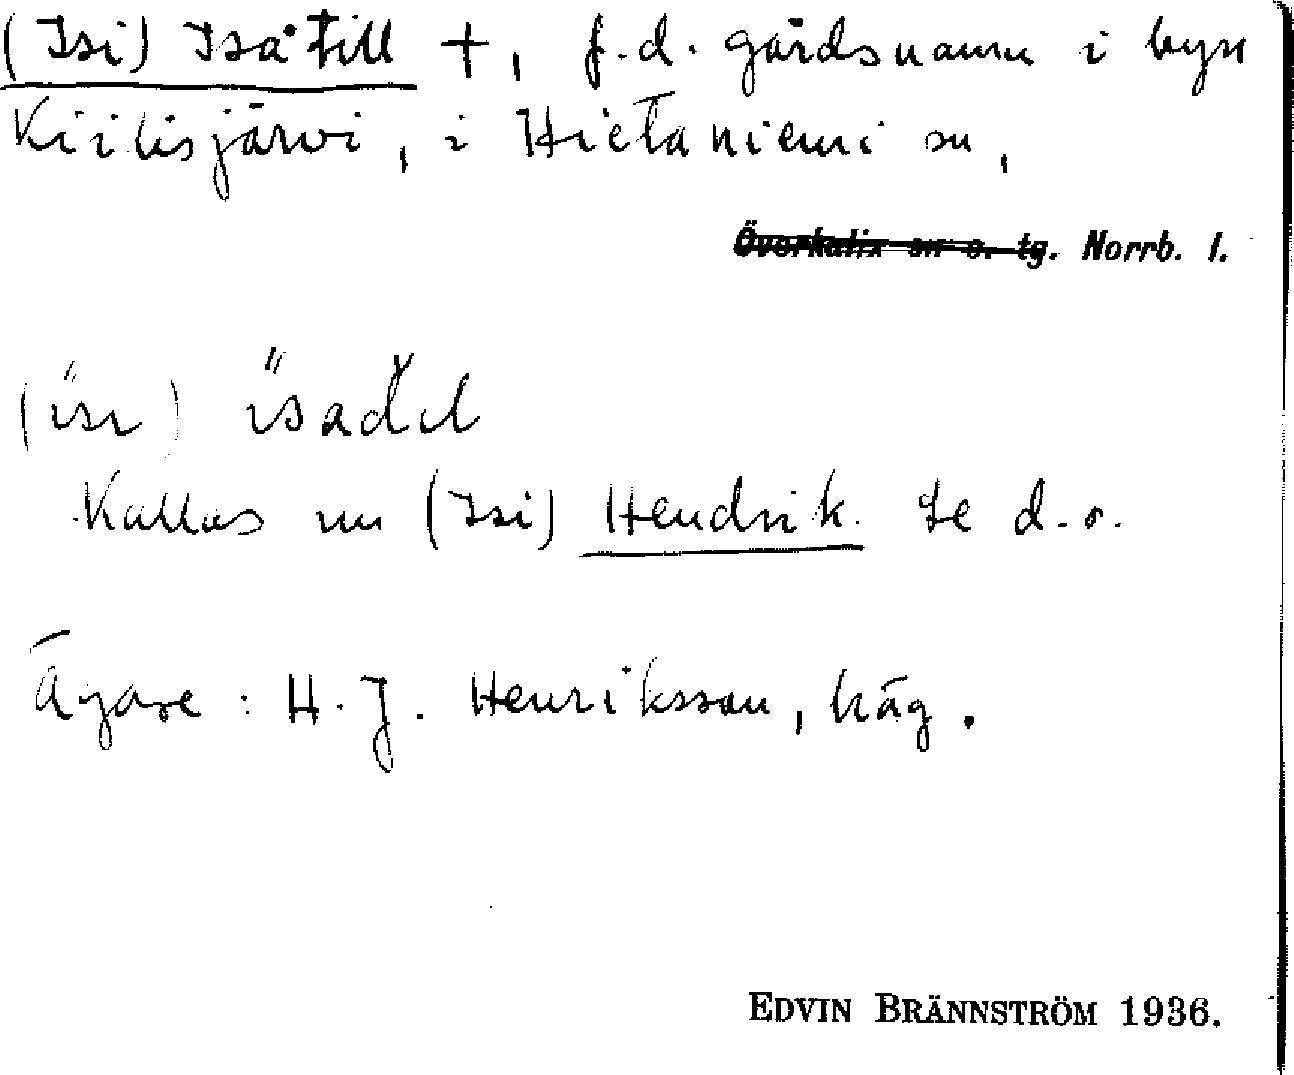 (Isi) Isåtill +, f.d. gårdsnamn i byn
Kiilisjärvi, i Hietaniemi sn,
Överkalix sn o. tg. Norrb. l.
(ïsɩ) ïsadɩl
Kallas nu (Isi) Hendrik. Se d.o.
Ägare: H. J. Henriksson, häg.
EDVIN BRÄNNSTRÖM 1936.